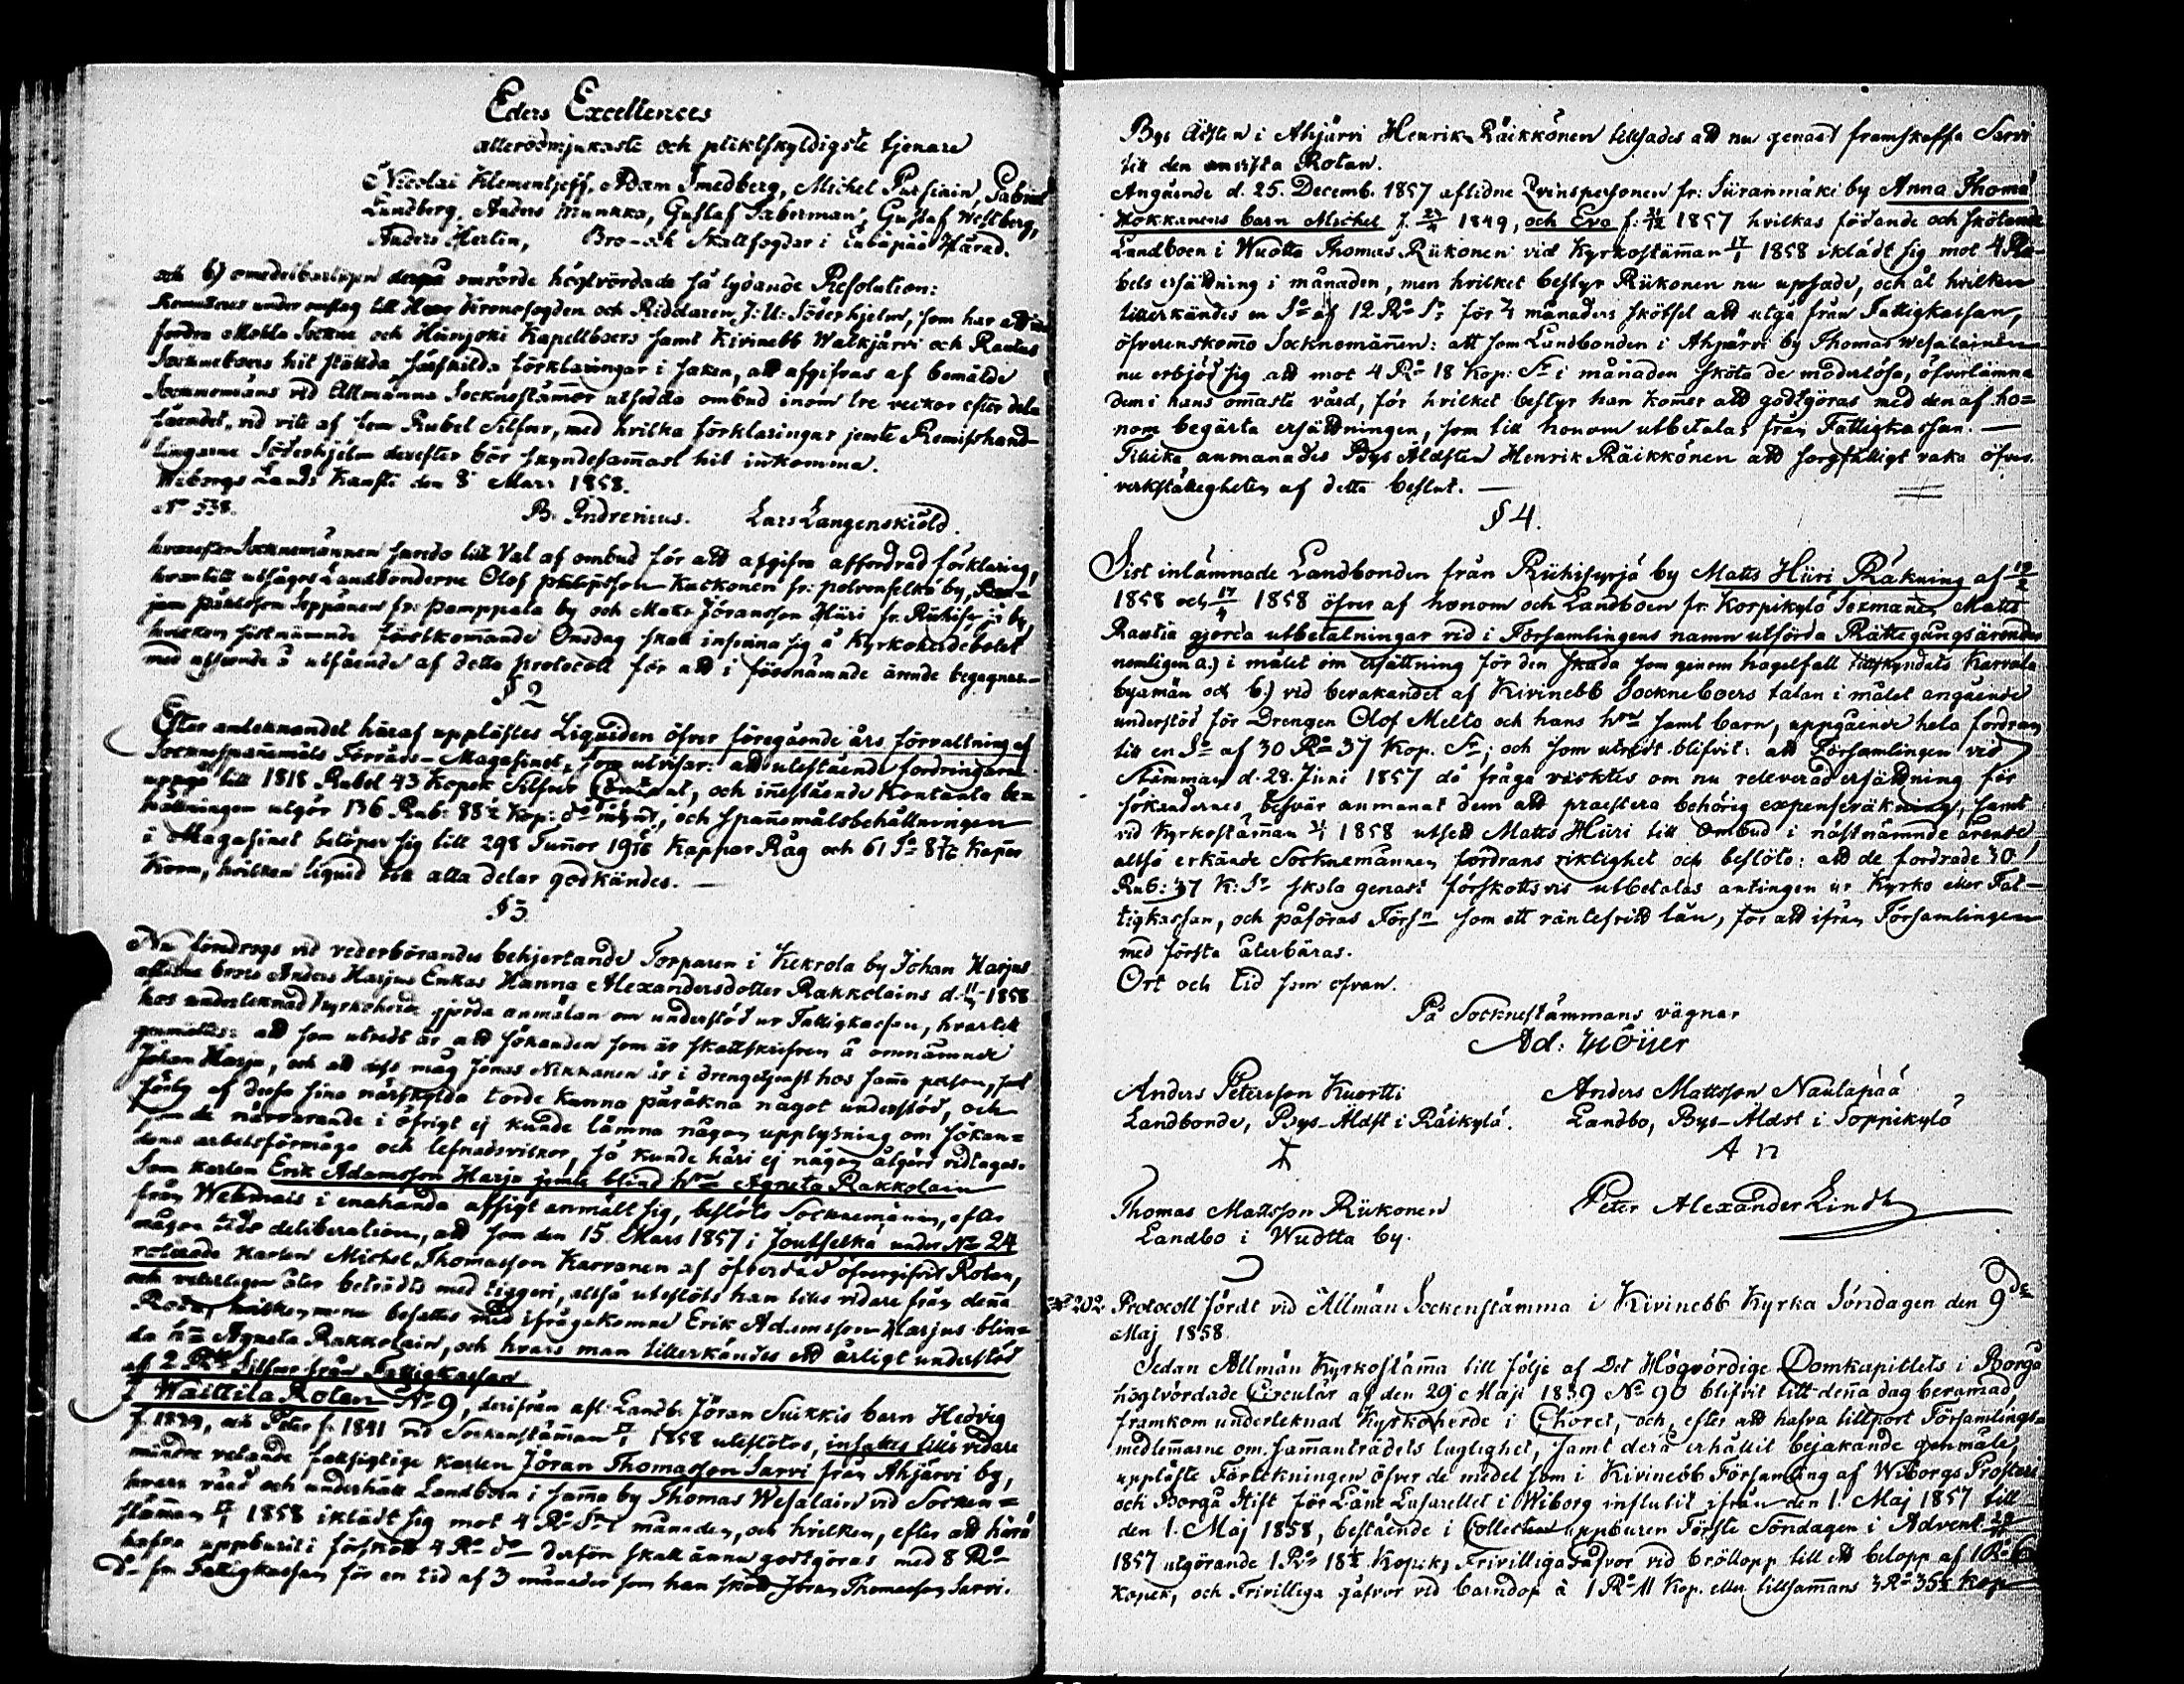 Eders Excellences
allerödmjukaste och pliktskyldigste tjenare
Nicolai Klementjeff, Adam Smedberg, Michel Pursiain, Gabriel
Lundberg, Anders Munkka, Gustaf Taberman, Gustaf Westberg,
Anders Herlin, Bro- och Skallfogdar i Euräpää Härad.
och b) omedelbarligen derpå omrörde högtvördade så lydande Resolution:
Remitteras under omslag till Herr Kronofogden och Riddaren J: U: Söderhjelm, som har att in-
fordra Mohla Sockne och Heinjoki Kapellboers samt Kivinebb Walkjärvi och Rautus
Sockneboers hit ställda, särskilda förklaringar i saken, att afgifvas af bemälde
Socknemäns vid Allmänna Socknestämmor utsedda ombud inom tre veckor efter dela
faendet, vid vite af fem Rubel Silfver, med hvilka förklaringar jemte Remisshand-
lingarne Söderhjelm derefter bör skyndesammast hit inkomma.
Wiborgs Lands Kansli den 8 Mars 1858.
No 538. B. Indrenius. Lars Langenskiöld.
hvarefter Socknemännen skredo till Val af ombud för att afgifva affordrad förklaring,
hvartill utsågos Landbönderne Olof Philipsson Kackonen fr: Polvenselkä by, Ben-
jam Påhlsson Seppänen fr: Pamppala by och Matts Jöransson Hüri fr. Riihisyrjä by,
hvilken sistnämnde förstkomande Onsdag skall infinna sig å Kyrkoherdebolet
med afseende å utfående af detta protocoll för att i förenämnde ärende begagnas.
§ 2
Efter antecknandet häraf upplästes Liquiden öfver föregående års förvaltning af
Sockne spannemåls Förråds-Magasinet, som utvisar: att utestående fordringarne
uppgå till 1818 Rubel 43 Kopek Silfver, och innestående Kontanta be-
hållningen utgör 136 Rub: 88½ Kop: do mynt, och spannemålsbehållningen
i Magasinet belöper sig till 298 Tunnor Kappar Råg och 61 Kappar
Korn, hvilken liquid till alla delar godkändes. —
§ 3.
Nu föredrogs vid vederbörandes behjertande Torparen i Kekrola by Johan Harjus
aflidne brors Anders Harjus Enkas Hanna Alexandersdotter Rakkolains d. 1858
hos undertecknad Kyrkoherde gjorda anmälan om understöd ur Fattigkassan, hvartill
genmältes: att som utredt är att sökanden som är skattskrifven å omnämnde
Johan Harju, och att dess måg Jonas Nikkanen är i drengetjenst hos samma person, samt
sökg af dessa sina närskylda torde kunna påräkna något understöd, och
som de närvarande i öfrigt ej kunde lämna någon upplysning om sökan-
dens arbetsförmåga och lefnadsvilkor, så kunde häri ej någon åtgärd vidtagas.
Som karlen Erik Adamsson Harju jemte blind hru Agneta Rakkolain
från Wehmais i enahanda afsigt anmält sig, beslöto Socknemännen, efter
någon tids deliberation, att som den 15. Mars 1857 i Joutselkä under No 24
roterade Karlen Michel Thomasson Karvanen af öfverdåd öfvergifvit Rotan,
och veterligen åter beträdts med tiggeri, alltså uteslöts han tills vidare från denna
Rota, hvilken mena besattes med ifrågakomne Erik Adamsson Harjus blin-
da hru Agneta Rakkolain, och hvars man tillerkändes ett årligt understöd
af 2 Rub Silfver från Fattigkassan
I Waittila Rotan No 9, derifrån afl: Landb. Jöran Suikkis barn Hedvig
f. 1839, och Peter f. 1841 vid Sockenstämman 1858 uteslötos, insattes tills vidare
mindre vetande fallsigtige karlen Jöran Thomasson Sarvi från Ahjärvi by,
hvars vård och underhåll Landboen i samma by Thomas Wesalain vid Socken-
stämman 1858 iklädt sig mot 4 Ro Sr i månaden, och hvilken, efter att härå
hafva uppburit i förskott 4 Ro do derför skall ännu godtgöras med 8 Ro
do fr. Fattigkassan för en tid af 3 månader som han skött Jöran Thomasson Sarvi.
Bys Älsten i Ahjärvi Henrik Räikkönen tillsades att nu genast framskaffa Sarvi
till den anvista Rotan.
Angående d. 25. Decemb. 1857 aflidne Qvinspersonen fr: Siiranmäki by Anna Thoma
Hokkanens barn Michel f. 1849, och Eva f: 1857 hvilkas födande och skötande
Landboen i Wuotta Thomas Riikonen vid Kyrkostämman 17/1 1858 iklädt sig mot 4 Ru-
bels ersättning i månaden, men hvilket bestyr Riikonen nu uppsade, och åt hvilken
tillerkändes en Sa af 12 Ro Sr för 3 månaders skötsel att utgå från Fattigkassan,
öfverenskommo Socknemännen: att som Landbonden i Ahjärvi by Thomas Wesalainen
nu erbjöd sig att mot 4 Ro 18 Kop: Sr i månaden sköta de moderlösa, öfverlämna
dem i hans ommaste vård, för hvilket bestyr han kommer att godtgöras med den af ho=
nom begärta ersättningen, som till honom utbetalas från Fattigkassan. —
Tillika anmanades Bys Äldsten Henrik Räikkönen att sorgfälligt vaka öfver
verkställigheten af detta beslut. —
§ 4.
Sist inlämnade Landbonden från Riihisyrjä by Matts Hüri Räkning af
1858 och 1858 öfver af honom och Landboen fr: Korpikylä Sexmanen Matts
Rautia gjorda utbetalningar vid i Församlingens namn utförda Rättegångsärenden
nemligen a.) i målet om ersättning för den skada som genom hagelfall tillskyndats Karvala
byamän och b.) vid bevakandet af Kivinebb Sockneboers talan i målet angående
understöd för Drengen Olof Melto och hans hru samt barn, uppgående hela fordran
till en Sa af 30 Ro 37 Kop. Sr; och som utredt blifvit: att Församlingen vid
Stämman d. 28. Juni 1857 då fråga väcktes om nu releverad ersättning för
sökandernes besvär anmanat dem att præstera behörig expenseräkning, samt
vid Kyrkostämman 1858 utsett Matts Hüri till Ombud i nästnämnde ärende
altså erkände Socknemännen fordrans riktighet och beslöto: att de fordrade 30
Rub: 37 K: Sr skola genast förskottsvis utbetalas antingen ur Kyrko eller Fat-
tigkassan, och påföras Förs:n som ett räntefritt lån, för att ifrån Församlingen
med första återbäras.
Ort och tid som ofvan.
På Socknestämmans vägnar
Ad: Höijer
Anders Petersson Kuortti Anders Mattsson Naulapää
Landbonde, Bys-Äldst i Räikylä. Landbo, Bys-Äldst i Soppikylä
Thomas Mattsson Riikonen Peter Alexander Lindh
Landbo i Wuotta by.
202 Protocoll fördt vid Allmän Sockenstämma i Kivinebb Kyrka Söndagen den 9de
Maj 1858.
Sedan Allmän Kyrkostämma till följe af Det Högvördige Domkapitlets i Borgå
högtvördade Circulär af den 29 Maji 1839 No 90 blifvit till denna dag beramad,
framkom undertecknad Kyrkoherde i Choret, och, efter att hafva tillsport Församlings-
medlemmarne om sammanträdets laglighet, samt derå erhållit bejakande genmäle,
uppläste Förteckningen öfver de medel som i Kivinebb Församling af Wiborgs Prosteri
och Borgå Stift för Läne Lasarettet i Wiborg influtit ifrån den 1. Maj 1857 till
den 1. Maj 1858, bestående i Collecten uppburen Förste Söndagen i Advent
1857 utgörande 1 Ro 18½ Kopek, Frivilliga Gåfvor vid bröllopp till ett belopp af 1 Ro
Kopek, och Frivilliga gåfvor vid barndop à 1 Ro 11 Kop. eller tillsammans 3 Ro 35½ Kop